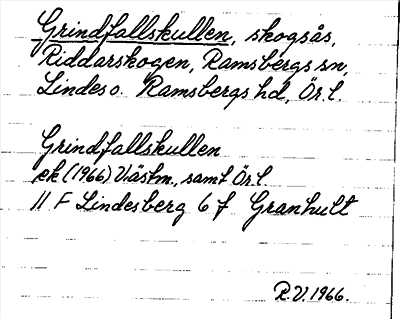 Grindfallskullen, skogsås,
Riddarskogen, Ramsbergs sn,
Lindes o. Ramsbergs hd, Ör.l.
Grindfallskullen
ek (1966) Västm., samt Ör.l.
11 F Lindesberg 6 f Granhult
R.V. 1966.